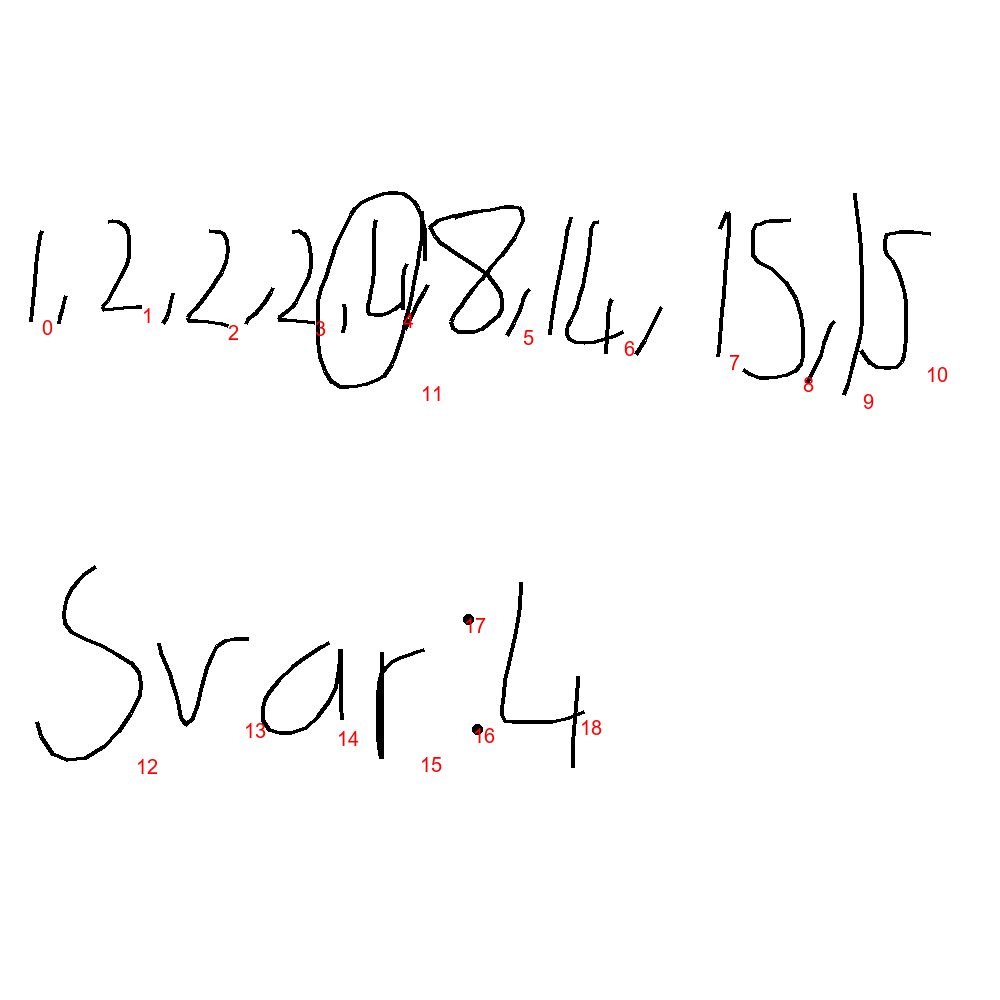 1, 2, 2, 2, 4, 8, 14, 15, 15
0 1 2 3 4 5 6 7 8 9 10
11
Svar: 4
12 13 14 15 16 17 18